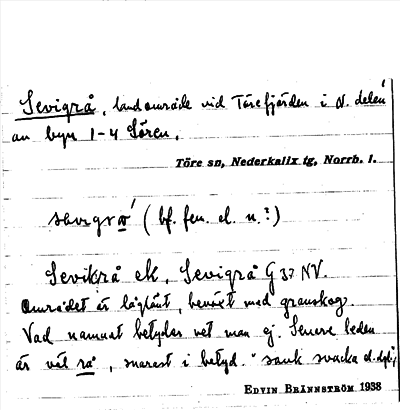 Sevigrå, landområde vid Törefjärden i N. delen
av byn 1-4 Sören.
Töre sn, Nederkalix tg, Norrb. l.
(bf. fen. el. n.?)
Sevikrå ek. Sevigrå G 37 NV.
Området är låglänt, beväxt med granskog.
Vad namnet betyder vet man ej. Senare leden
är väl rå, snarast i betyd. "sank svacka o. dyl."
EDVIN BRÄNNSTRÖM 1938